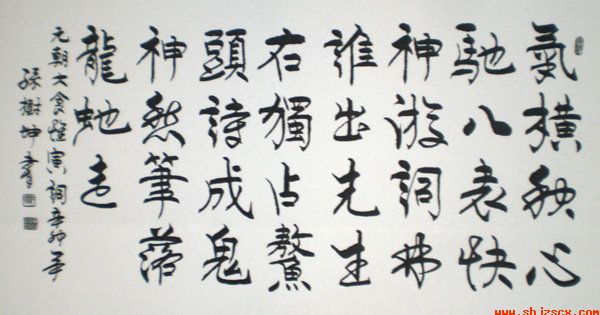 氣橫秋心
馳八表快
神游詞林
誰出先生
右獨占鰲
頭詩成鬼
神愁筆落
龍虵走
元朝大食惟寅詞辛卯年
孫樹坤書
www.shizscx.com